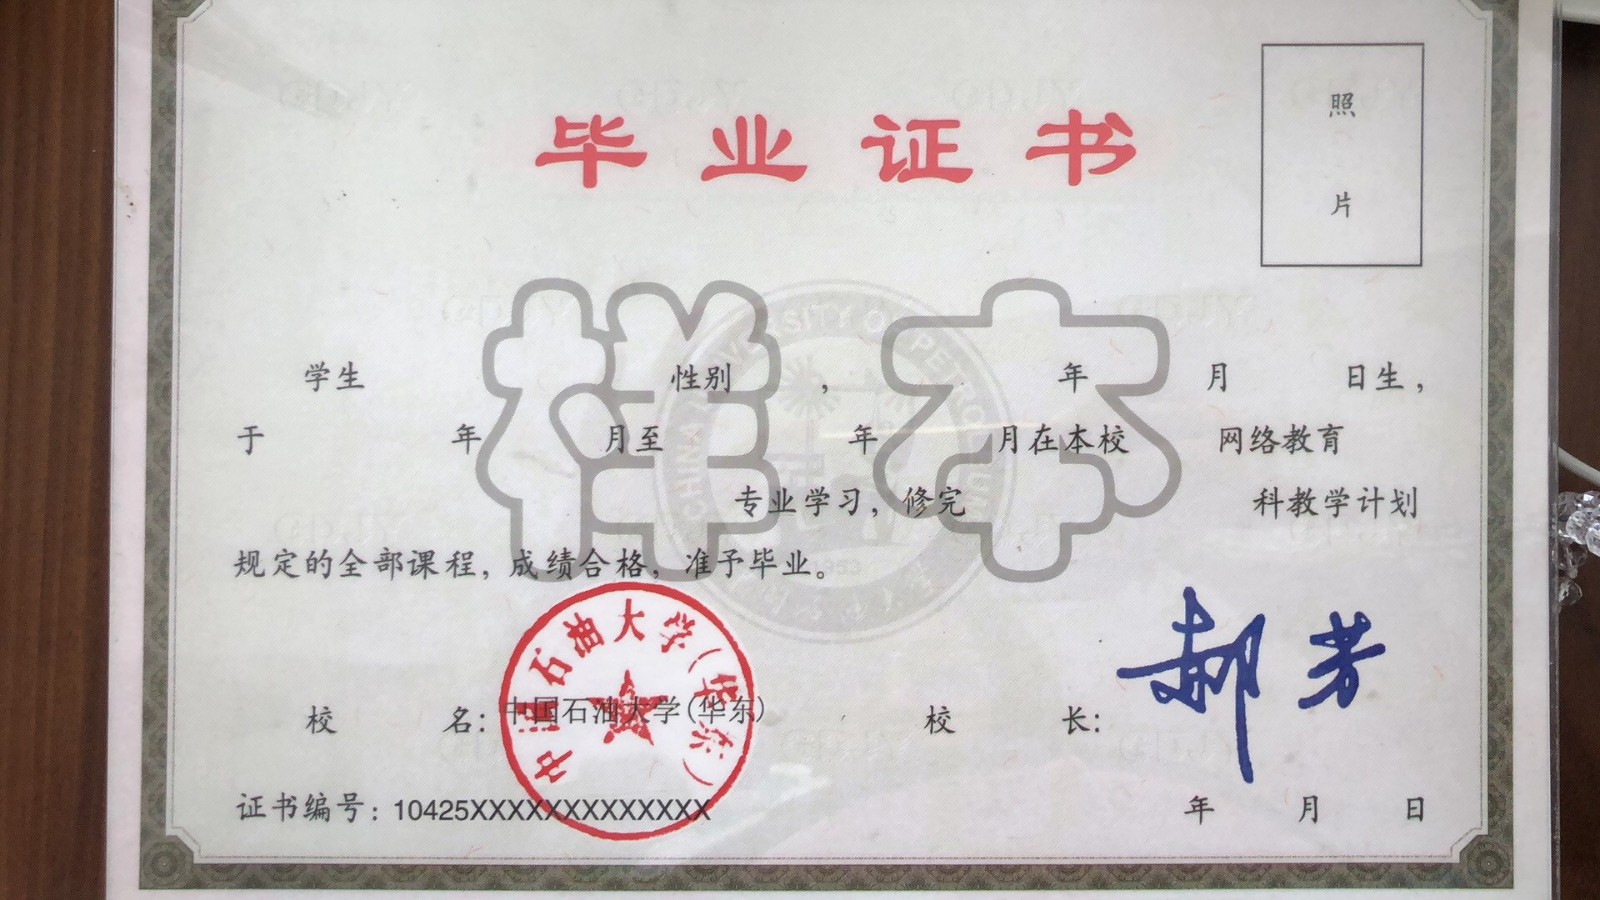 毕业证书
照
片
样本
学生 性别 , 年 月 日生,
于 年 月至 年 月在本校 网络教育
专业学习, 修完 科教学计划
规定的全部课程, 成绩合格, 准予毕业。
中国石油大学(华东)
校 名: 中国石油大学(华东) 校 长: 郝芳
证书编号: 10425XXXXXXXXXXXXX
年 月 日
1953